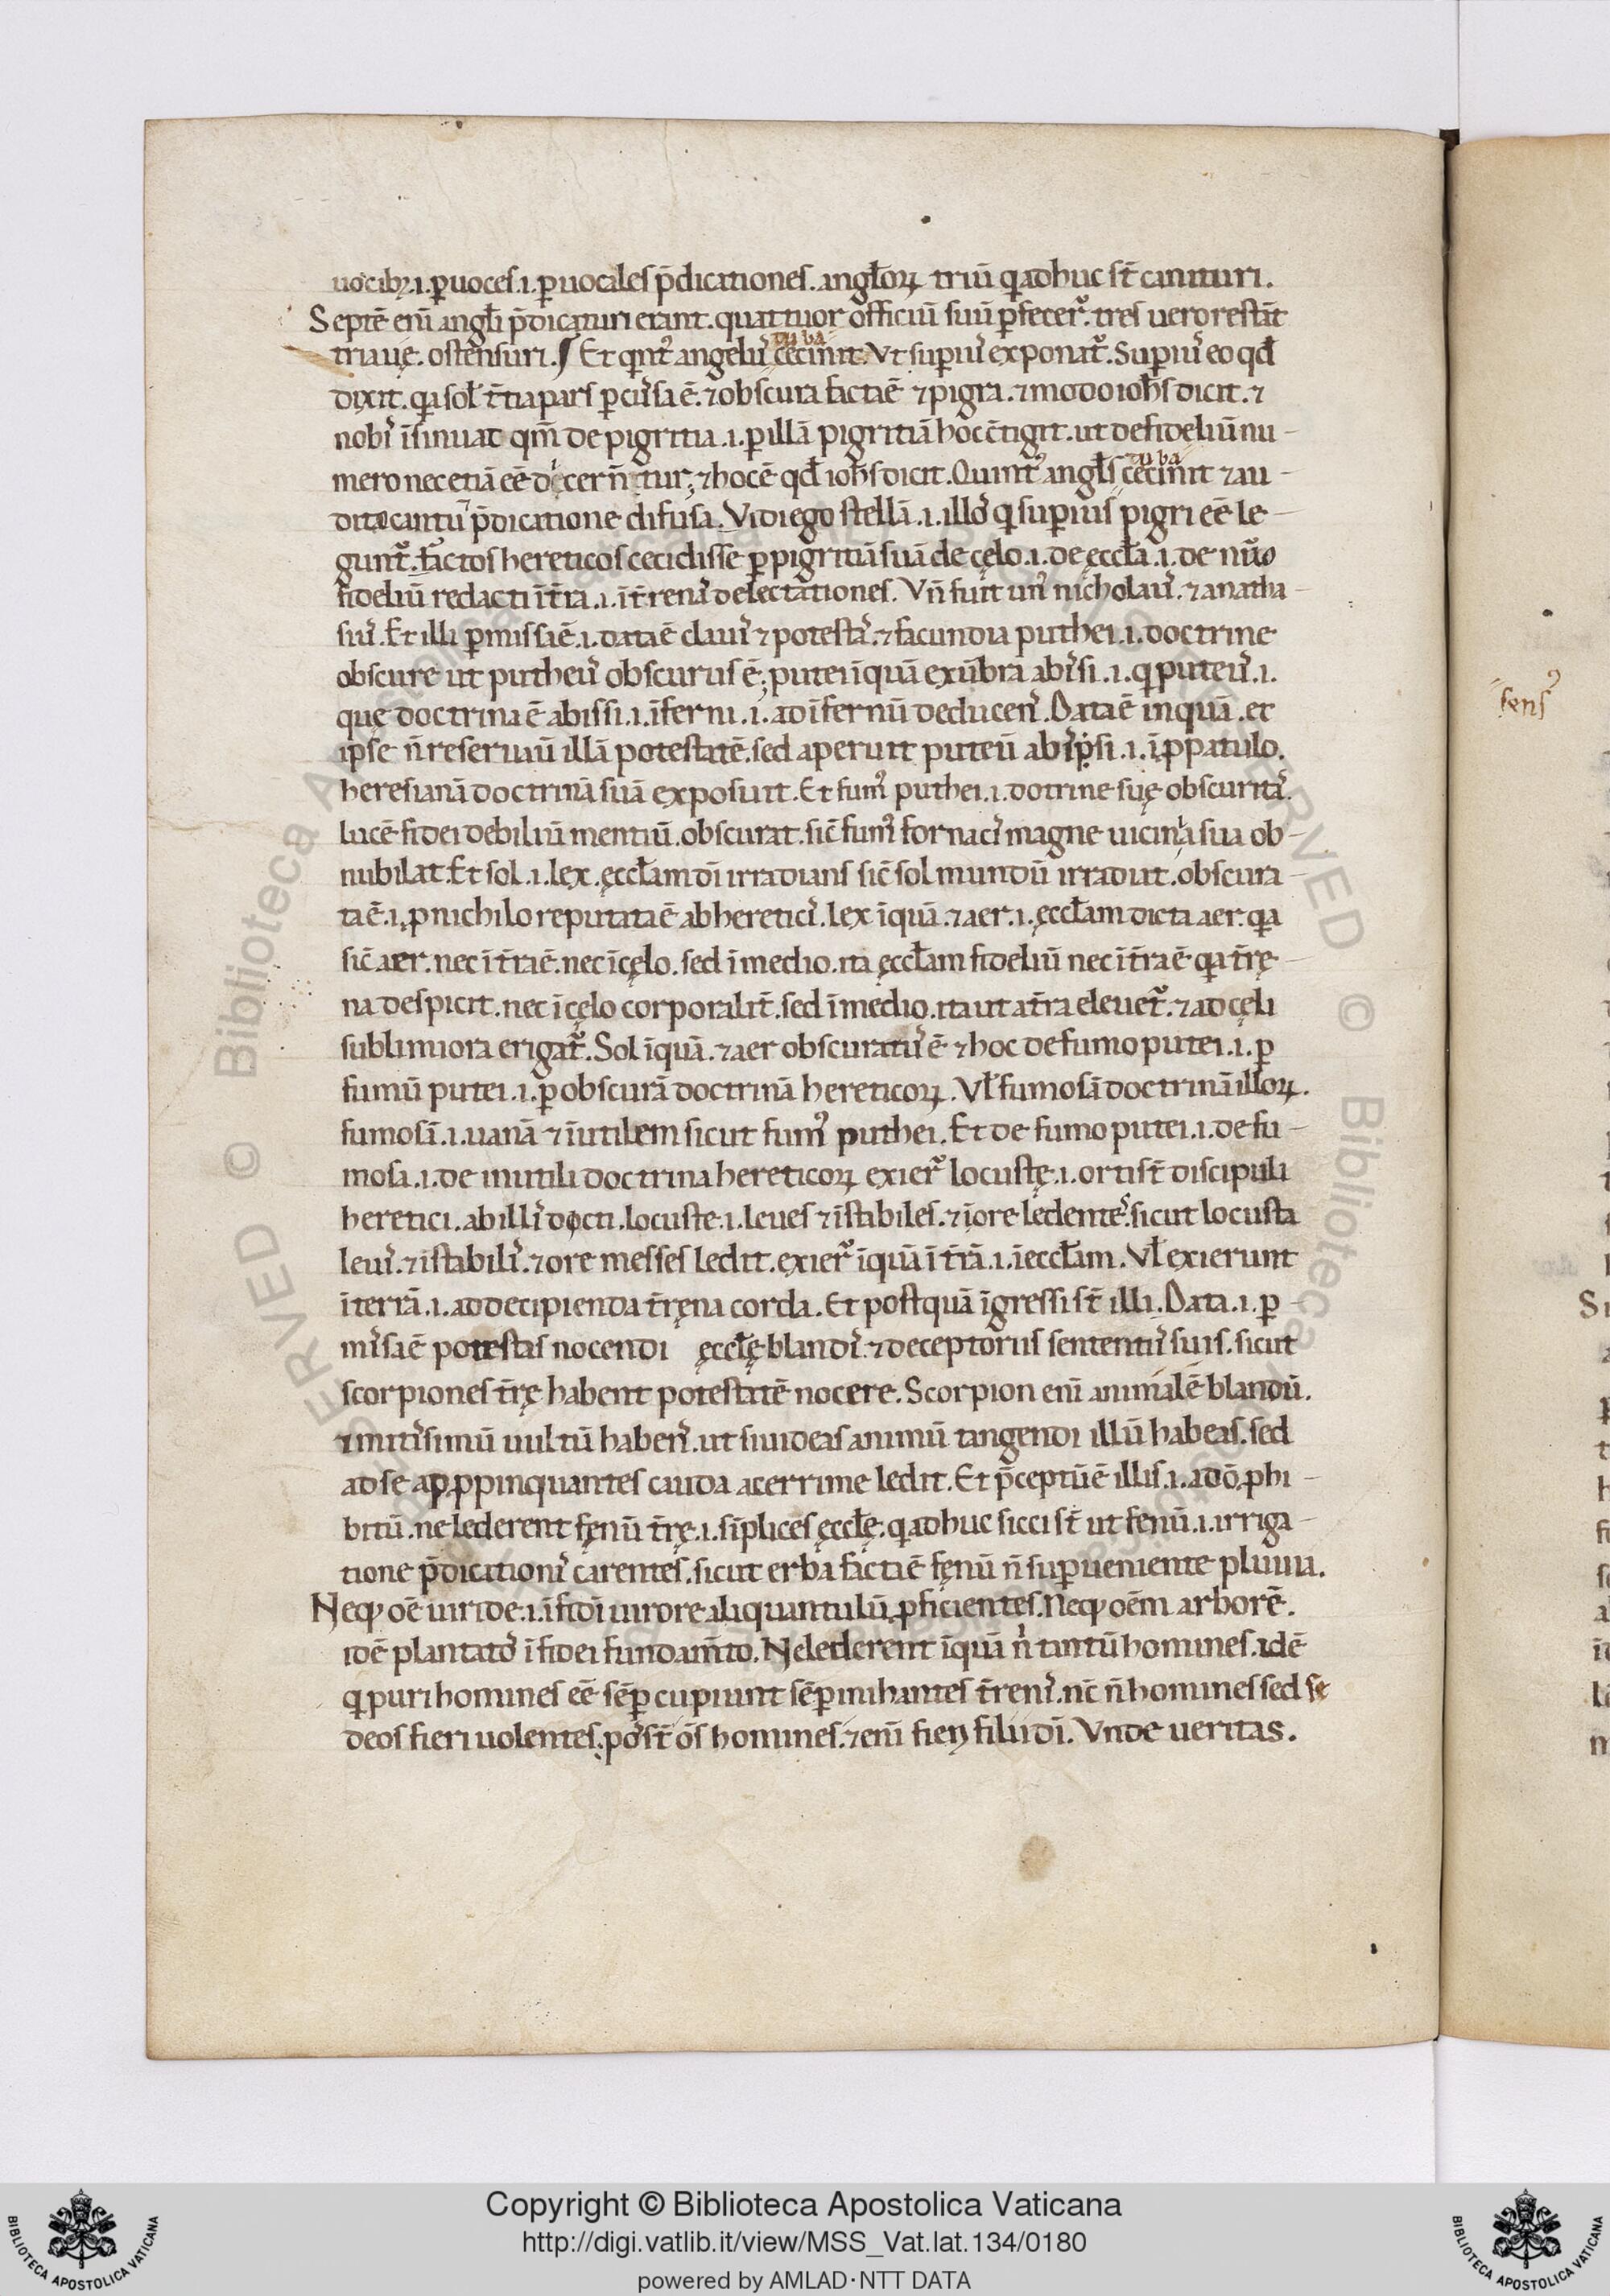 uocibꝫ .i. ꝑ uoces .i. ꝑ uocales p̄dicationes. angłoꝝ triū q̇ adhuc st̄ canituri.
Septē eni᷒ angłi p̄dicaturi erant. quattuor officiū suū ꝑfecer᷑. tres uero restāt
tria uę. ostensuri. ¶ Et qͥnt᷒ angelu᷒ cecinit tuba. Vt superi᷒ exponat᷑. Superi᷒ eo qđ
dixit. qͣ sol t̄tia pars ꝑcu᷒sa ē. ⁊ obscura facta ē ⁊ pigra. ⁊ modo ioħs dicit. ⁊
nobi᷒ īsinuat qm̄ de pigritia .i. ꝑ illā pigritiā hoc c̄tigit. ut de fideliū nu-
mero nec etiā eē dicern̄tur; ⁊ hoc ē qđ ioħs dicit. Quint᷒ angłs cecinit tuba ⁊ au-
dito cantu p̄dicatione difusa. Vidi ego stellā .i. illo᷒ qͥ superius pigri eē le-
gunt᷑. factos hereticos cecidisse ꝑ pigritiā suā de cęlo .i. de ęccła .i. de nūo
fideliū redacti ī t̄ra .i. ī t̄rena᷒ delectationes. Vn̄ fuit un᷒ nicholau᷒. ⁊ anatha-
siu᷒. Et illi ꝑmissa ē .i. data ē claui᷒ ⁊ potesta᷒. ⁊ facundia puthei .i. doctrine
obscure ut putheu᷒ obscurus ē; putei īquā ex ūbra abi᷒si .i. qͥ puteu᷒ .i.
quę doctrina ē abissi .i. īferni .i. ad īfernū deducen᷒. Data ē inquā. et
ipse n̄ reseruau᷒ illā potestatē. sed aperuit puteū abipsi .i. ī ꝓpatulo.
heresianā doctrinā suā exposuit. Et fum᷒ puthei .i. dotrine suę obscurita᷒.
lucē fidei debiliū mentiū. obscurat. sic̄ fum᷒ fornaci᷒ magne uicina sua ob-
nubilat. Et sol .i. lex. ęccłam dī irradians sic̄ sol mundū irradiat. obscura-
ta ē .i. ꝓ nichilo reputata ē ab heretici᷒. lex īquā. ⁊ aer .i. ęccłam dicta aer. qͣ
sic̄ aer. nec ī t̄ra ē. nec ī cęlo. sed ī medio. ita ęccłam fideliū nec ī t̄ra ē qͣ t̄rę-
na despicit. nec ī cęlo corporalit̄. sed ī medio. ita ut a t̄ra eleuet᷑. ⁊ ad cęli
sublimiora erigat᷑. Sol īquā. ⁊ aer obscuratu᷒ ē ⁊ hoc de fumo putei .i. ꝑ
fumū putei .i. ꝑ obscurā doctrinā hereticoꝝ. Vł fumosā doctrinā illoꝝ.
fumosā .i. uanā ⁊ īutilem sicut fum᷒ puthei. Et de fumo putei .i. de fu-
mosa .i. de inutili doctrina hereticoꝝ exier᷑ locustę .i. orti st̄ discipuli
heretici. ab illi᷒ docti. locuste .i. leues ⁊ īstabiles. ⁊ ī ore ledente᷒. sicut locusta
leui᷒. ⁊ īstabili᷒. ⁊ ore messes ledit. exier᷑ īquā ī t̄rā .i. ī ecctam. Vł exierunt
ī terrā .i. ad decipienda t̄ręna corda. Et postquā īgressi st̄ illi. Data .i. ꝑ-
mi᷒sa ē potestas nocendi ęcctę blandi᷒. ⁊ deceptoriis sententii᷒ suis. sicut
scorpiones t̄rę habent potestatē nocere. Scorpion eni᷒ animal ē blandū.
⁊ miti᷒simū uultū haben᷒. ut si uideas animū tangendi illū habeas. sed
ad se appropinquantes cauda acerrime ledit. Et p̄ceptū ē illis .i. a dō ꝓhi-
bitū. ne lederent fęnū t̄rę .i. sīplices ęccłę. qͥ adhuc sicci st̄ ut fenū .i. irriga-
tione p̄dicationi᷒ carentes. sicut erba facta ē fęnū n̄ superueniente pluuia.
Neqꝫ oē uiride .i. ī fidī uirore aliquantulū ꝓficientes. Neqꝫ oēm arborē.
idē plantato᷒ ī fidei fundam̄to. Ne lederent īquā n̄ tantū homines. idē
qͥ puri homines eē sēꝑ cupiunt sēꝑ inhiantes t̄reni᷒. nc̄ n̄ homines sed se
deos fieri uolentes. post̄ ōs homines. ⁊ eni᷒ fieri filii dī. Vnde ueritas.
sens᷒
Copyright © Biblioteca Apostolica Vaticana
http://digi.vatlib.it/view/MSS_Vat.lat.134/0180
powered by AMLAD·NTT DATA
BIBLIOTECA APOSTOLICA VATICANA
BIBLIOTECA APOSTOLICA VATICANA